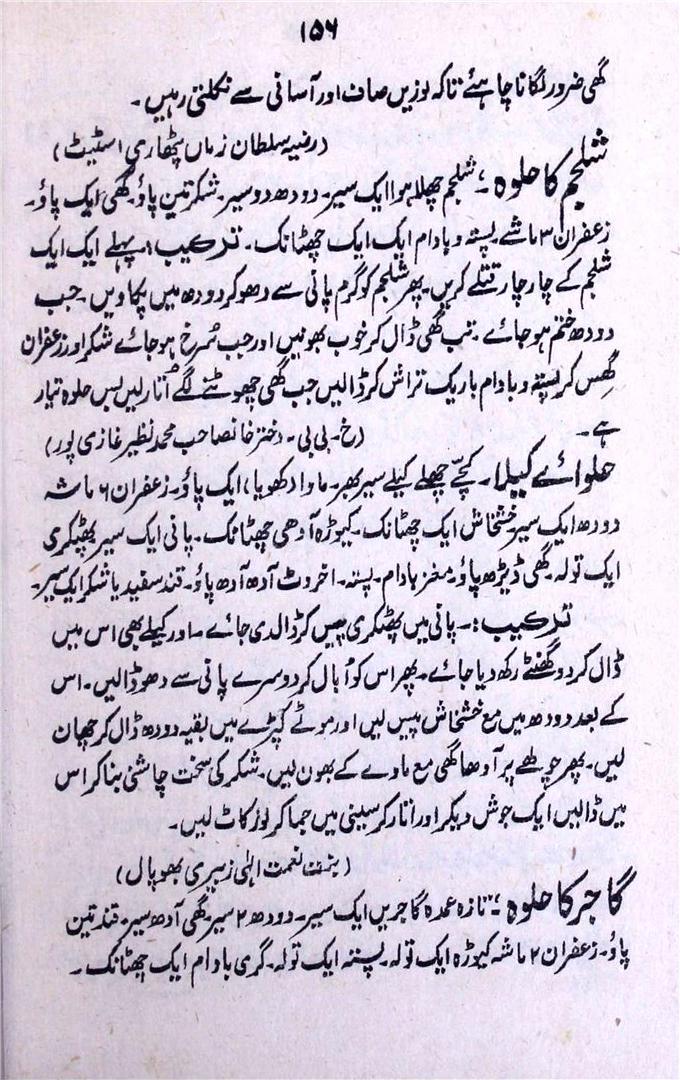 ۱۵۶
گھی ضرور لگانا چاہئے تاکہ لوزیں صاف اور آسانی سے نکلتی رہیں۔
(رضیہ سلطان زماں پٹھاری اسٹیٹ)
شلجم کا حلوہ :۔ شلجم چھلا ہوا ایک سیر۔ دودھ دو سیر۔ شکر تین پاؤ۔ گھی ایک پاؤ۔
زعفران ۳ ماشے۔ پستہ و بادام ایک ایک چھٹانک۔ ترکیب: پہلے ایک ایک
شلجم کے چار چار قتلے کریں۔ پھر شلجم کو گرم پانی سے دھو کر دودھ میں پکاویں۔ جب
دودھ ختم ہو جائے۔ تب گھی ڈال کر خوب بھونیں اور جب سُرخ ہو جائے شکر اور زعفران
گھِس کر پستہ و بادام باریک تراش کر ڈالیں جب گھی چھوٹنے لگے اُتار لیں بس حلوہ تیار
ہے۔ (خ۔ بی بی۔ دختر خانصاحب محمد نظیر غازی پور)
حلوائے کیلا۔ کچے چھلے کیلے سیر بھر۔ ماوا (کھویا) ایک پاؤ۔ زعفران ۶ ماشہ
دودھ ایک سیر خشخاش ایک چھٹانک۔ کیوڑہ آدھی چھٹانک۔ پانی ایک سیر پھٹکری
ایک تولہ۔ گھی ڈیڑھ پاؤ۔ مغز بادام۔ پستہ۔ اخروٹ آدھ آدھ پاؤ۔ قند سفید یا شکر ایک سیر۔
ترکیب:۔ پانی میں پھٹکری پیس کر ڈالدی جائے۔ اور کیلے بھی اس میں
ڈال کر دو گھنٹے رکھ دیا جائے۔ پھر اس کو اُبال کر دوسرے پانی سے دھو ڈالیں۔ اس
کے بعد دودھ میں مع خشخاش پیس لیں اور موٹے کپڑے میں بقیہ دودھ ڈال کر چھان
لیں۔ پھر چولھے پر آدھا گھی مع ماوے کے بھون لیں۔ شکر کی سخت چاشنی بنا کر اس
میں ڈالیں ایک جوش دیکر اور اتار کر سینی میں جما کر لوز کاٹ لیں۔
(بنت نعمت الٰہی زبیری بھوپال)
گاجر کا حلوہ :۔ تازہ عمدہ گاجریں ایک سیر۔ دودھ ۲ سیر۔ گھی آدھ سیر۔ قند تین
پاؤ۔ زعفران ۲ ماشہ کیوڑہ ایک تولہ۔ پستہ ایک تولہ۔ گری بادام ایک چھٹانک۔